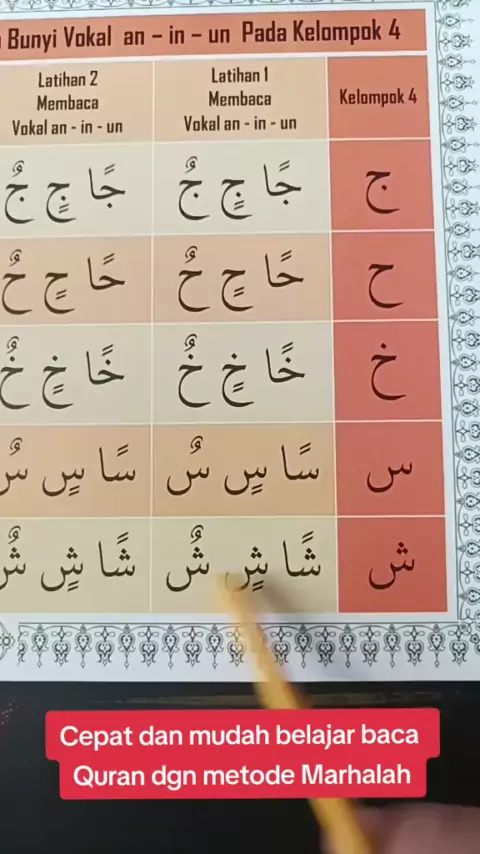 Bunyi Vokal an – in – un Pada Kelompok 4
Latihan 2
Membaca
Vokal an - in - un
Latihan 1
Membaca
Vokal an - in - un
Kelompok 4
ج جًا جٍ جٌ جًا جٍ جٌ
ح حًا حٍ حٌ حًا حٍ حٌ
خ خًا خٍ خٌ خًا خٍ خٌ
س سًا سٍ سٌ سًا سٍ سٌ
ش شًا شٍ شٌ شًا شٍ شٌ
Cepat dan mudah belajar baca
Quran dgn metode Marhalah